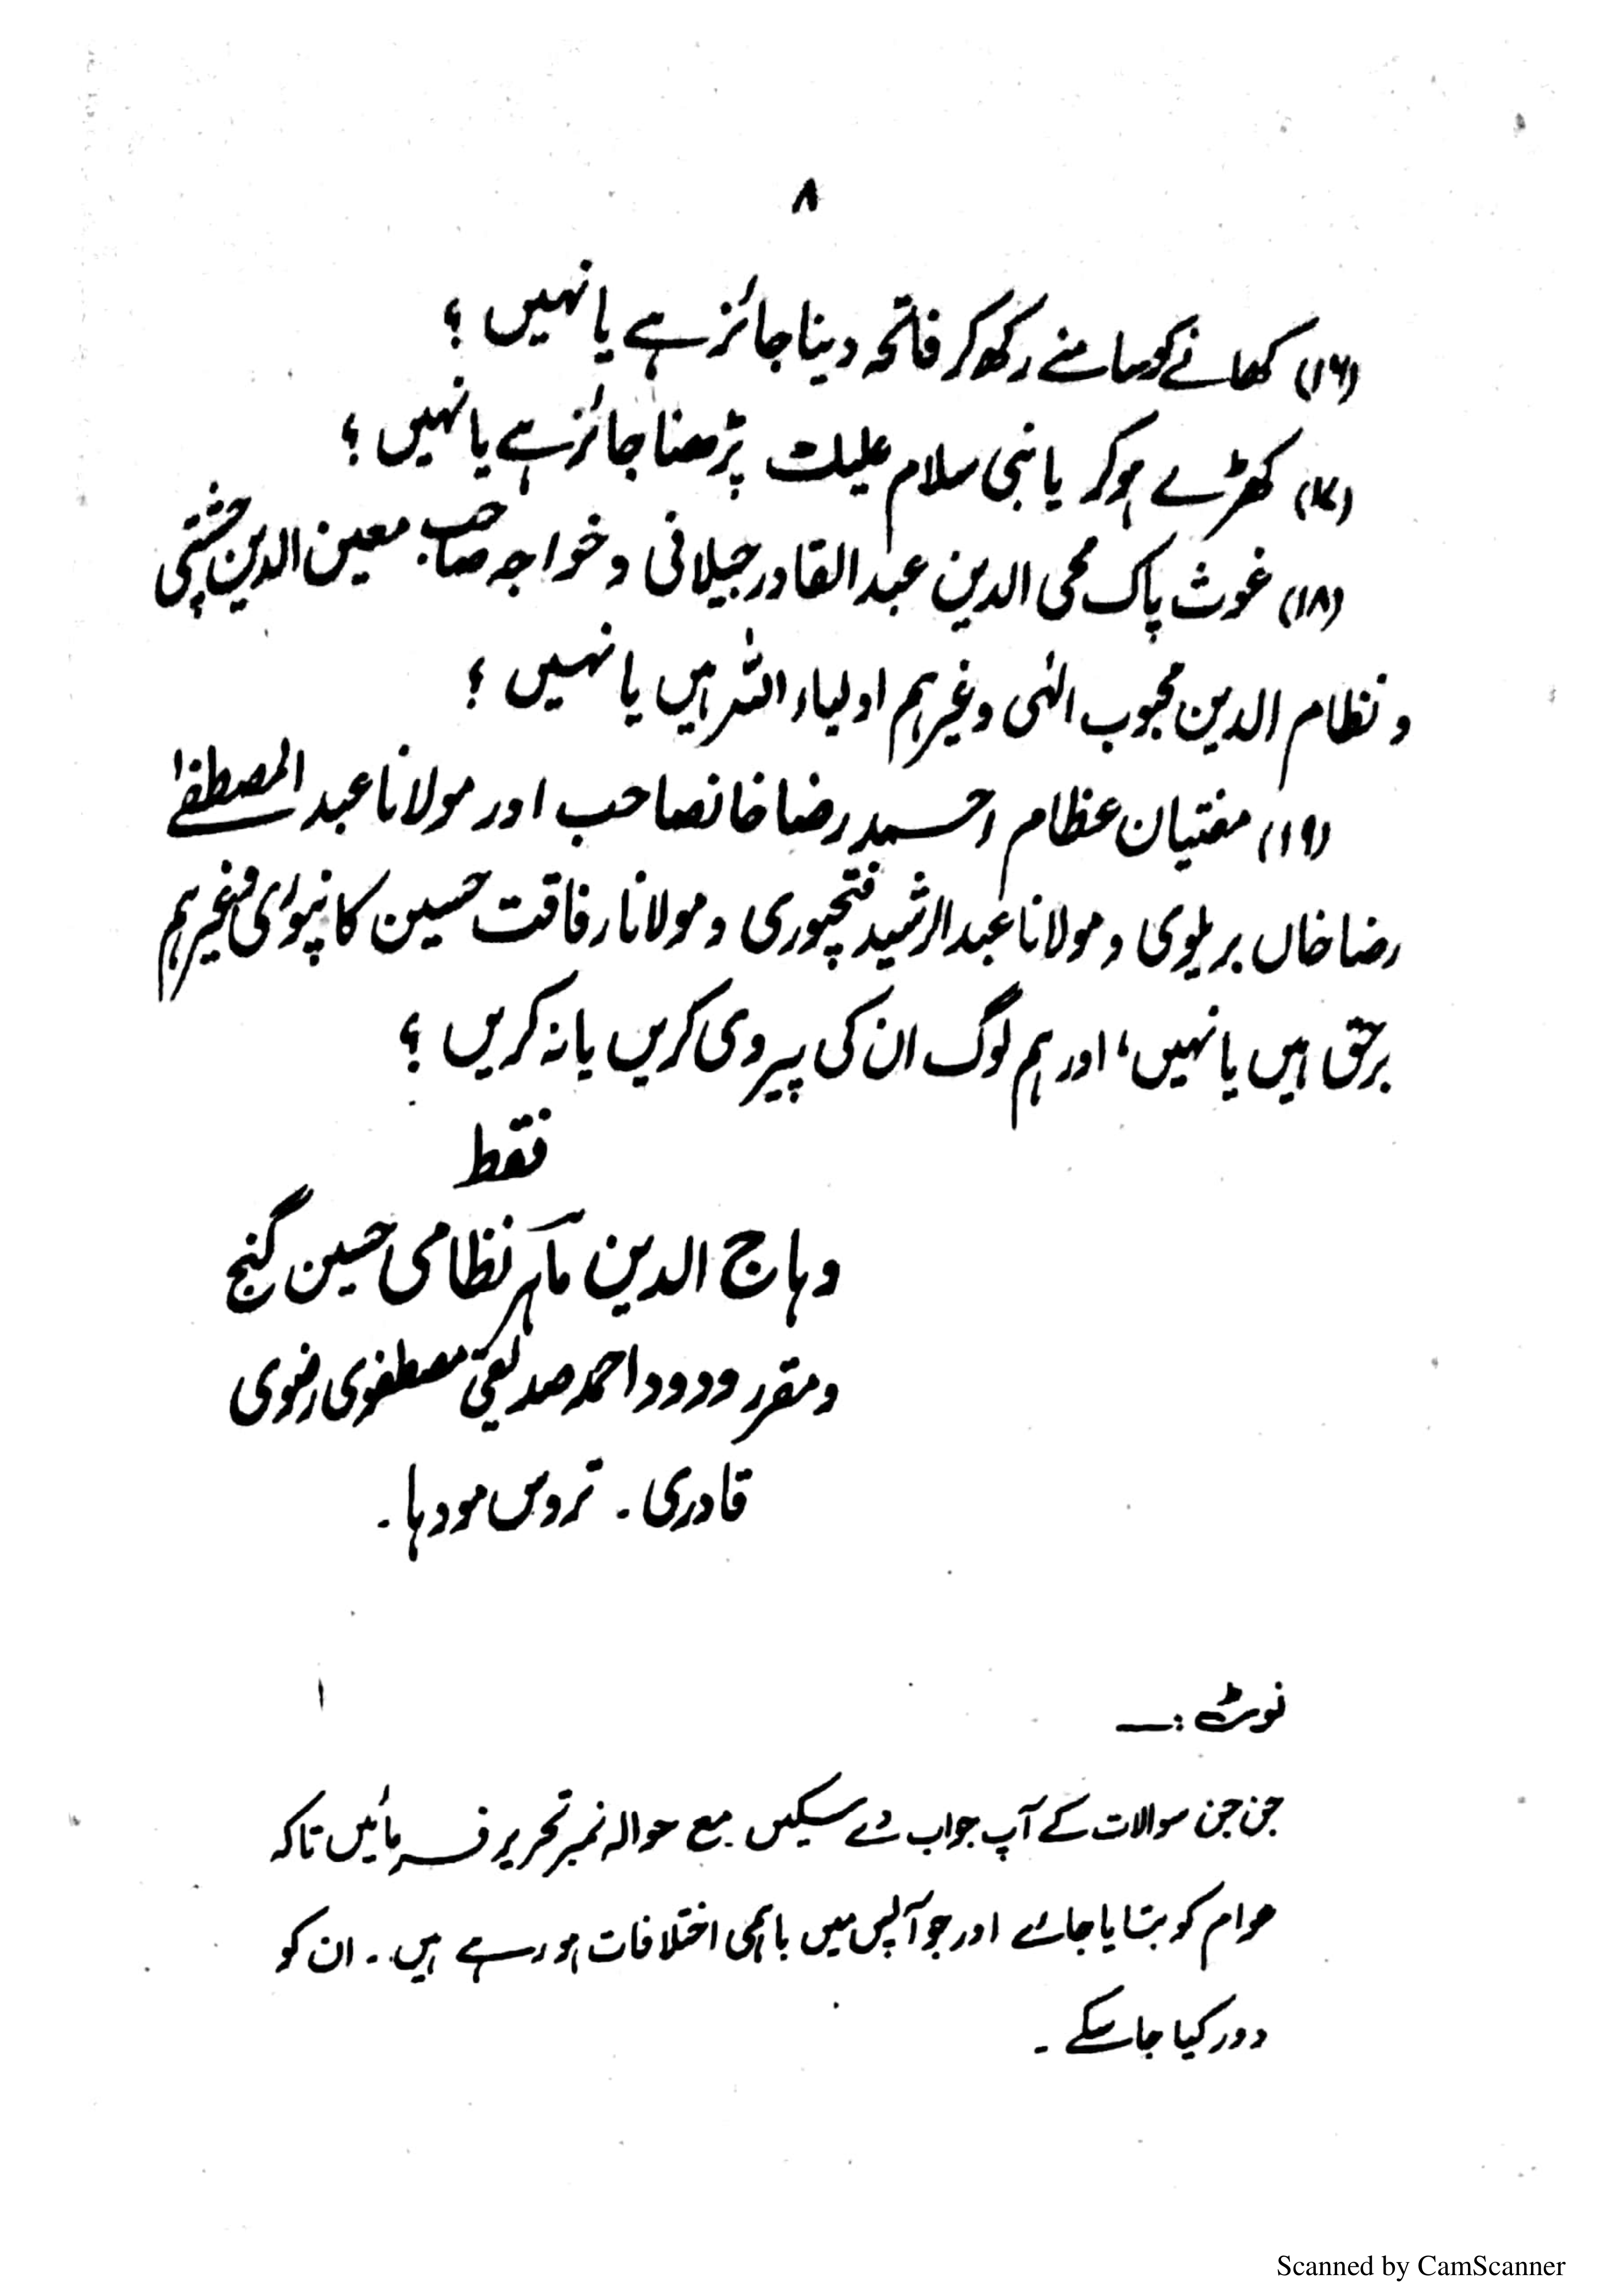 ۸
(۱۶) کھانے کو سامنے رکھ کر فاتحہ دینا جائز ہے یا نہیں ؟
(۱۷) کھڑے ہو کر یا نبی سلام علیک پڑھنا جائز ہے یا نہیں ؟
(۱۸) غوث پاک محی الدین عبد القادر جیلانی و خواجہ صاحب معین الدین چشتی
و نظام الدین محبوب الٰہی وغیرہم اولیاء اللہ ہیں یا نہیں ؟
(۱۹) مفتیان عظام احمد رضا خانصاحب اور مولانا عبد المصطفےٰ
رضا خاں بریلوی و مولانا عبد الرشید فتحپوری و مولانا رفاقت حسین کانپوری وغیرہم
برحق ہیں یا نہیں، اور ہم لوگ ان کی پیروی کریں یا نہ کریں ؟
فقط
وہاج الدین ماہر نظامی حسین گنج
و مقرر ودود احمد صدیقی مصطفوی رضوی
قادری ۔ تروس مودہا ۔
نوٹ :۔
جن جن سوالات کے آپ جواب دے سکیں مع حوالہ نمبر تحریر فرمائیں تاکہ
عوام کو بتایا جائے اور جو آپس میں باہمی اختلافات ہو رہے ہیں ۔ ان کو
دور کیا جا سکے ۔
Scanned by CamScanner